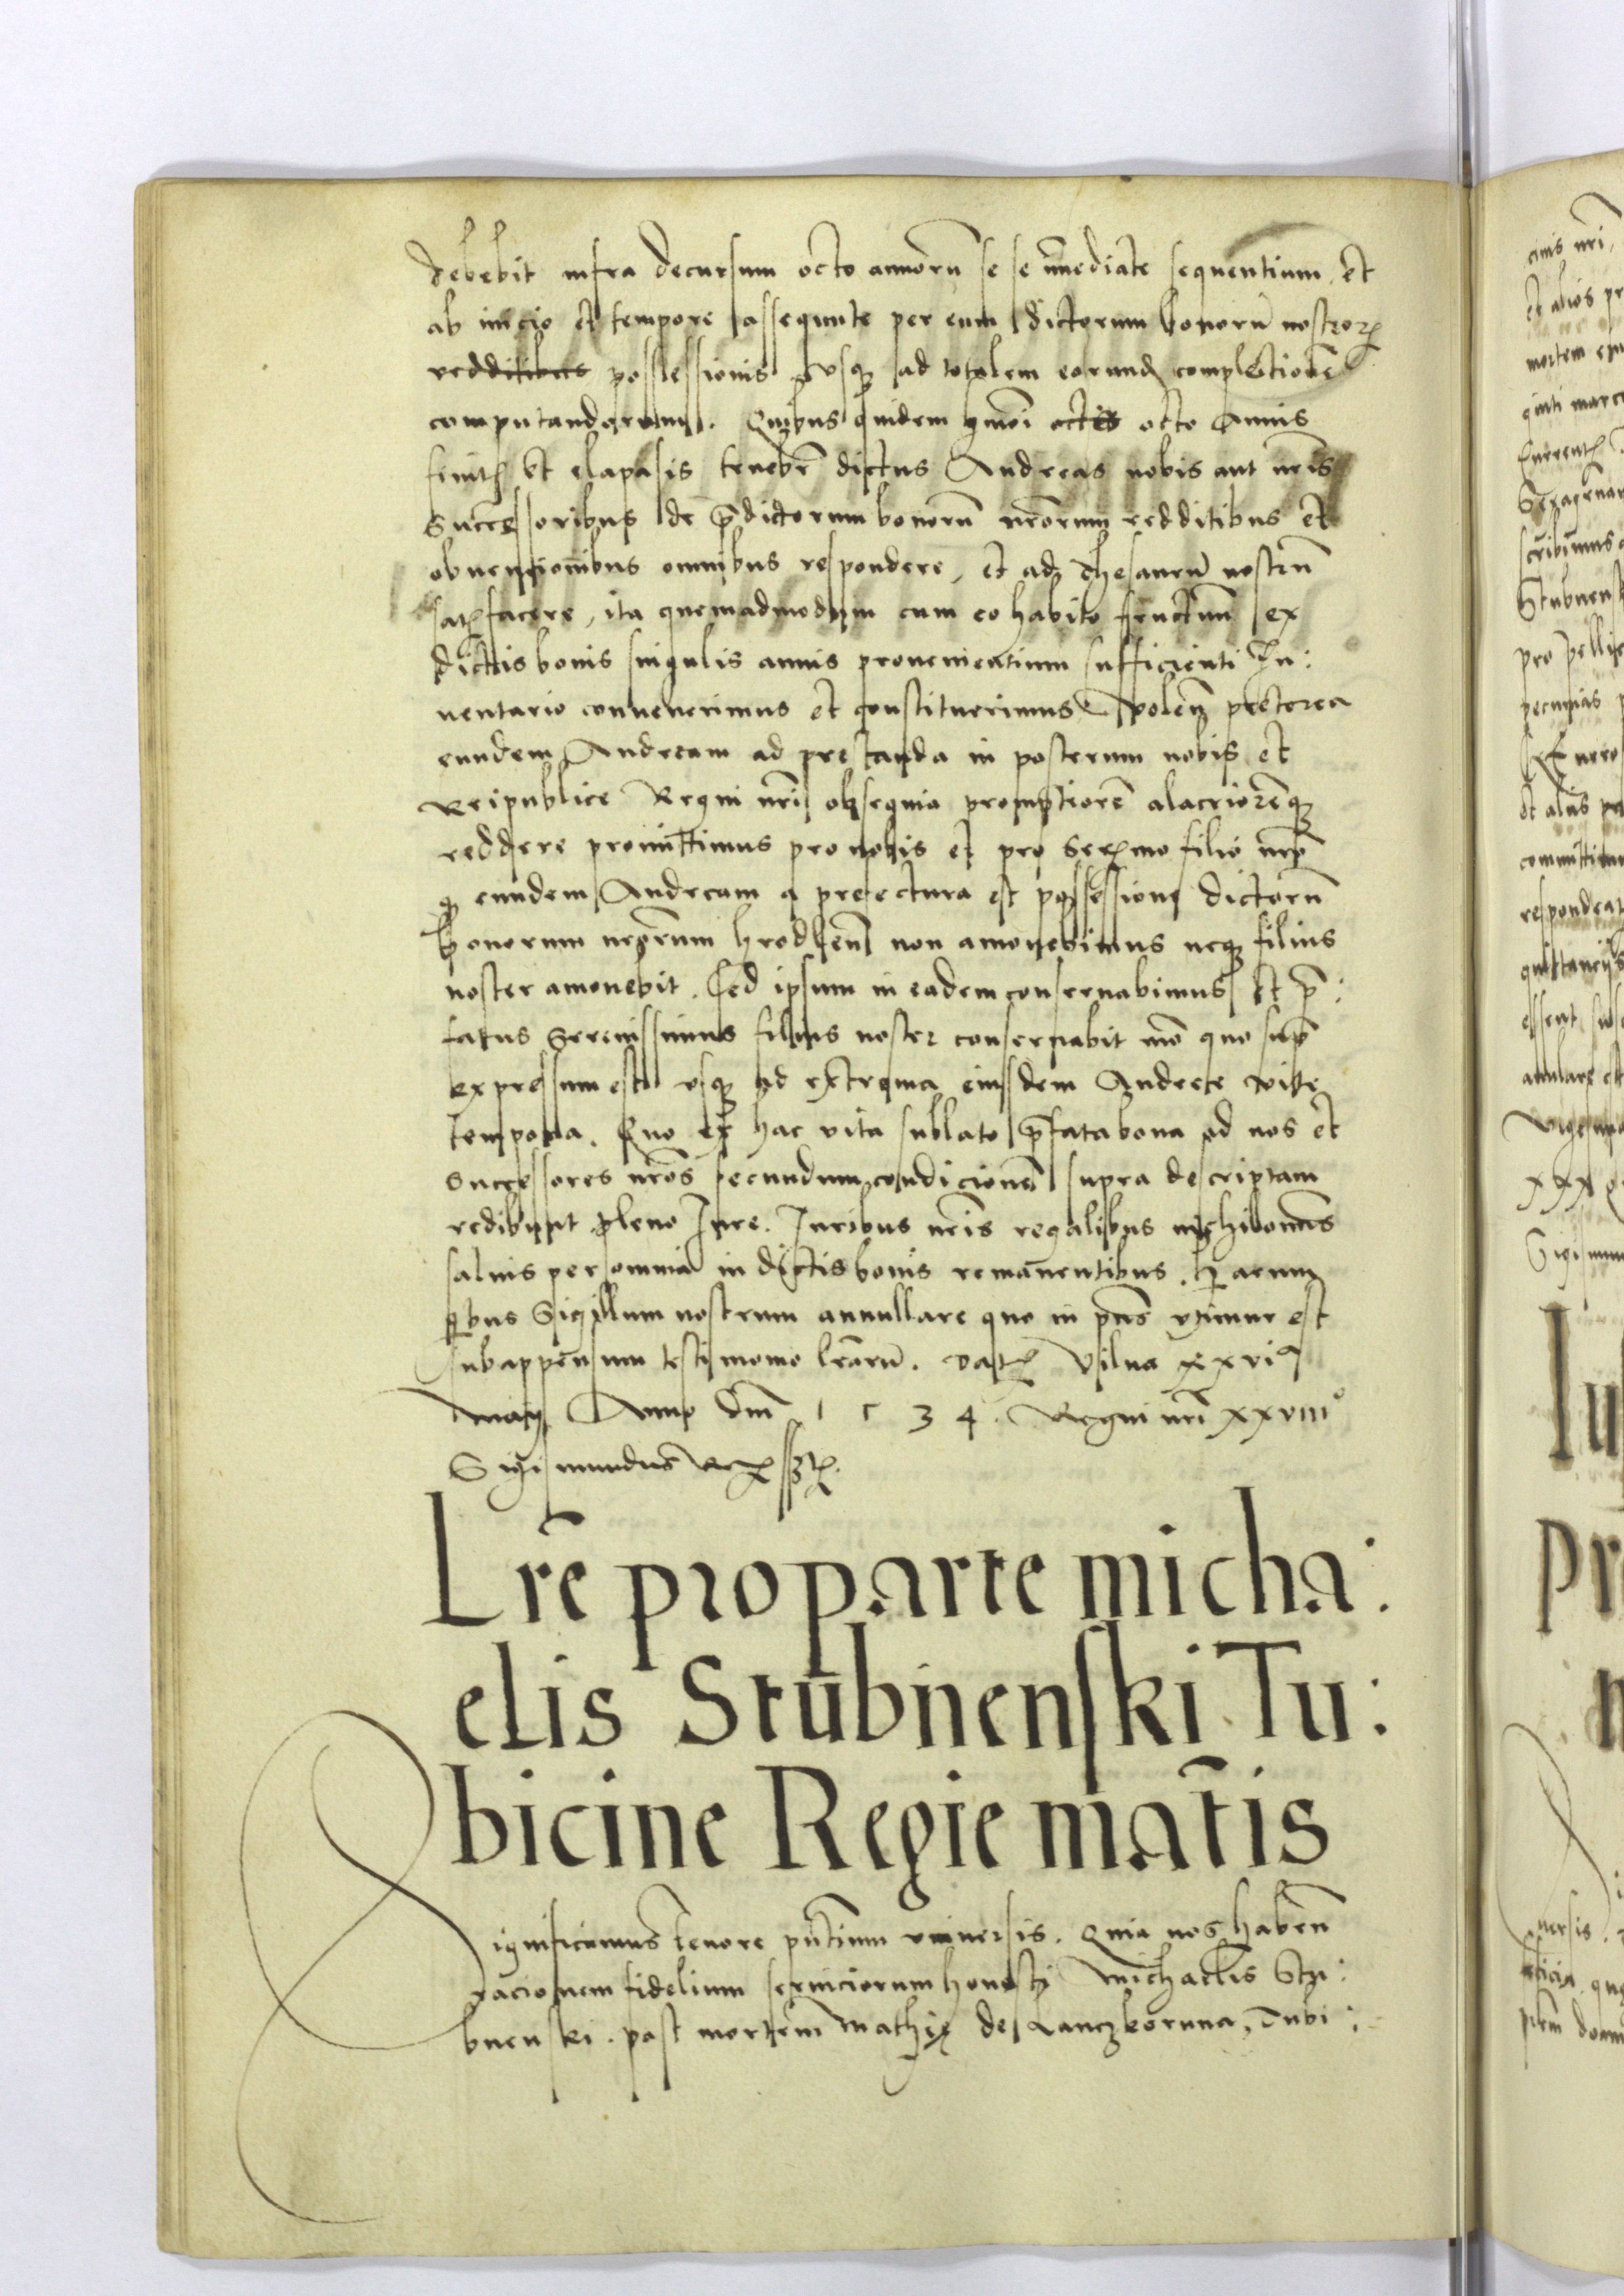 debebit infra decursum octo annorū se se īmediate sequentium et
ab inicio et tempore assequute per eum dictorum bonorū nostrorꝝ
redditibus possessionis usqꝫ ad totalem eorundꝫ complectionē
computandorum. Quibus quidem hmōi octo octo Annis
finitꝭ et elapsis tenebr̄ dictus Andreas nobis aut nr̄is
Successoribus de p̄dictorum bonorū nr̄orum redditibus et
obventionibus omnibus respondere, et ad Thesaurū nostrū
satꝭfacere, ita quemadmodum cum eo habito fructuū ex
dictis bonis singulis annis provenientium sufficienti In:
ventario convenerimus et constituerimus Volen̄ preterea
eundem Andream ad prestanda in posterum nobis et
Reipublice Regni nr̄i obsequia promptiorē alacriorēqꝫ
reddere promittimus pro nobis et pro Serꝰmo filio nr̄o
qꝫ eundem Andream a prefectura et possessione dictorū
bonorum nr̄orum Grodnen̄ non amovebimus neqꝫ filius
noster amovebit. Sed ipsum in eadem conservabimus et p̄:
fatus Serenissimus filius noster conservabit mō quo supra
expressum est usqꝫ ad extrema eiusdem Andree vite
tempora. Quo ex hac vita sublato p̄fata bona ad nos et
Successores nr̄os secundum condicionē supra descriptam
redibunt pleno Iure. Iuribus nr̄is regalibus nichilominus
salvis per omnia in dictis bonis remanentibus. Harum
quibus Sigillum nostrum annullare quo in p̄ns utimur est
subappensum testimonio lr̄arū. Datꝭ Vilna xxvi
Maij Anno Dn̄i 1534. Regni nr̄i xxviii°
Sigismundus Rex sstꝭ.
Lr̄e pro parte micha:
elis Stubnenski Tu:
bicine Regie mat̄is
Significamus tenore p̄ntium universis. Quia nos haben̄
racionem fidelium serviciorum honesti Michaelis Stu:
bnenski. post mortem Mathie de Lanczkoruna, Tubi: